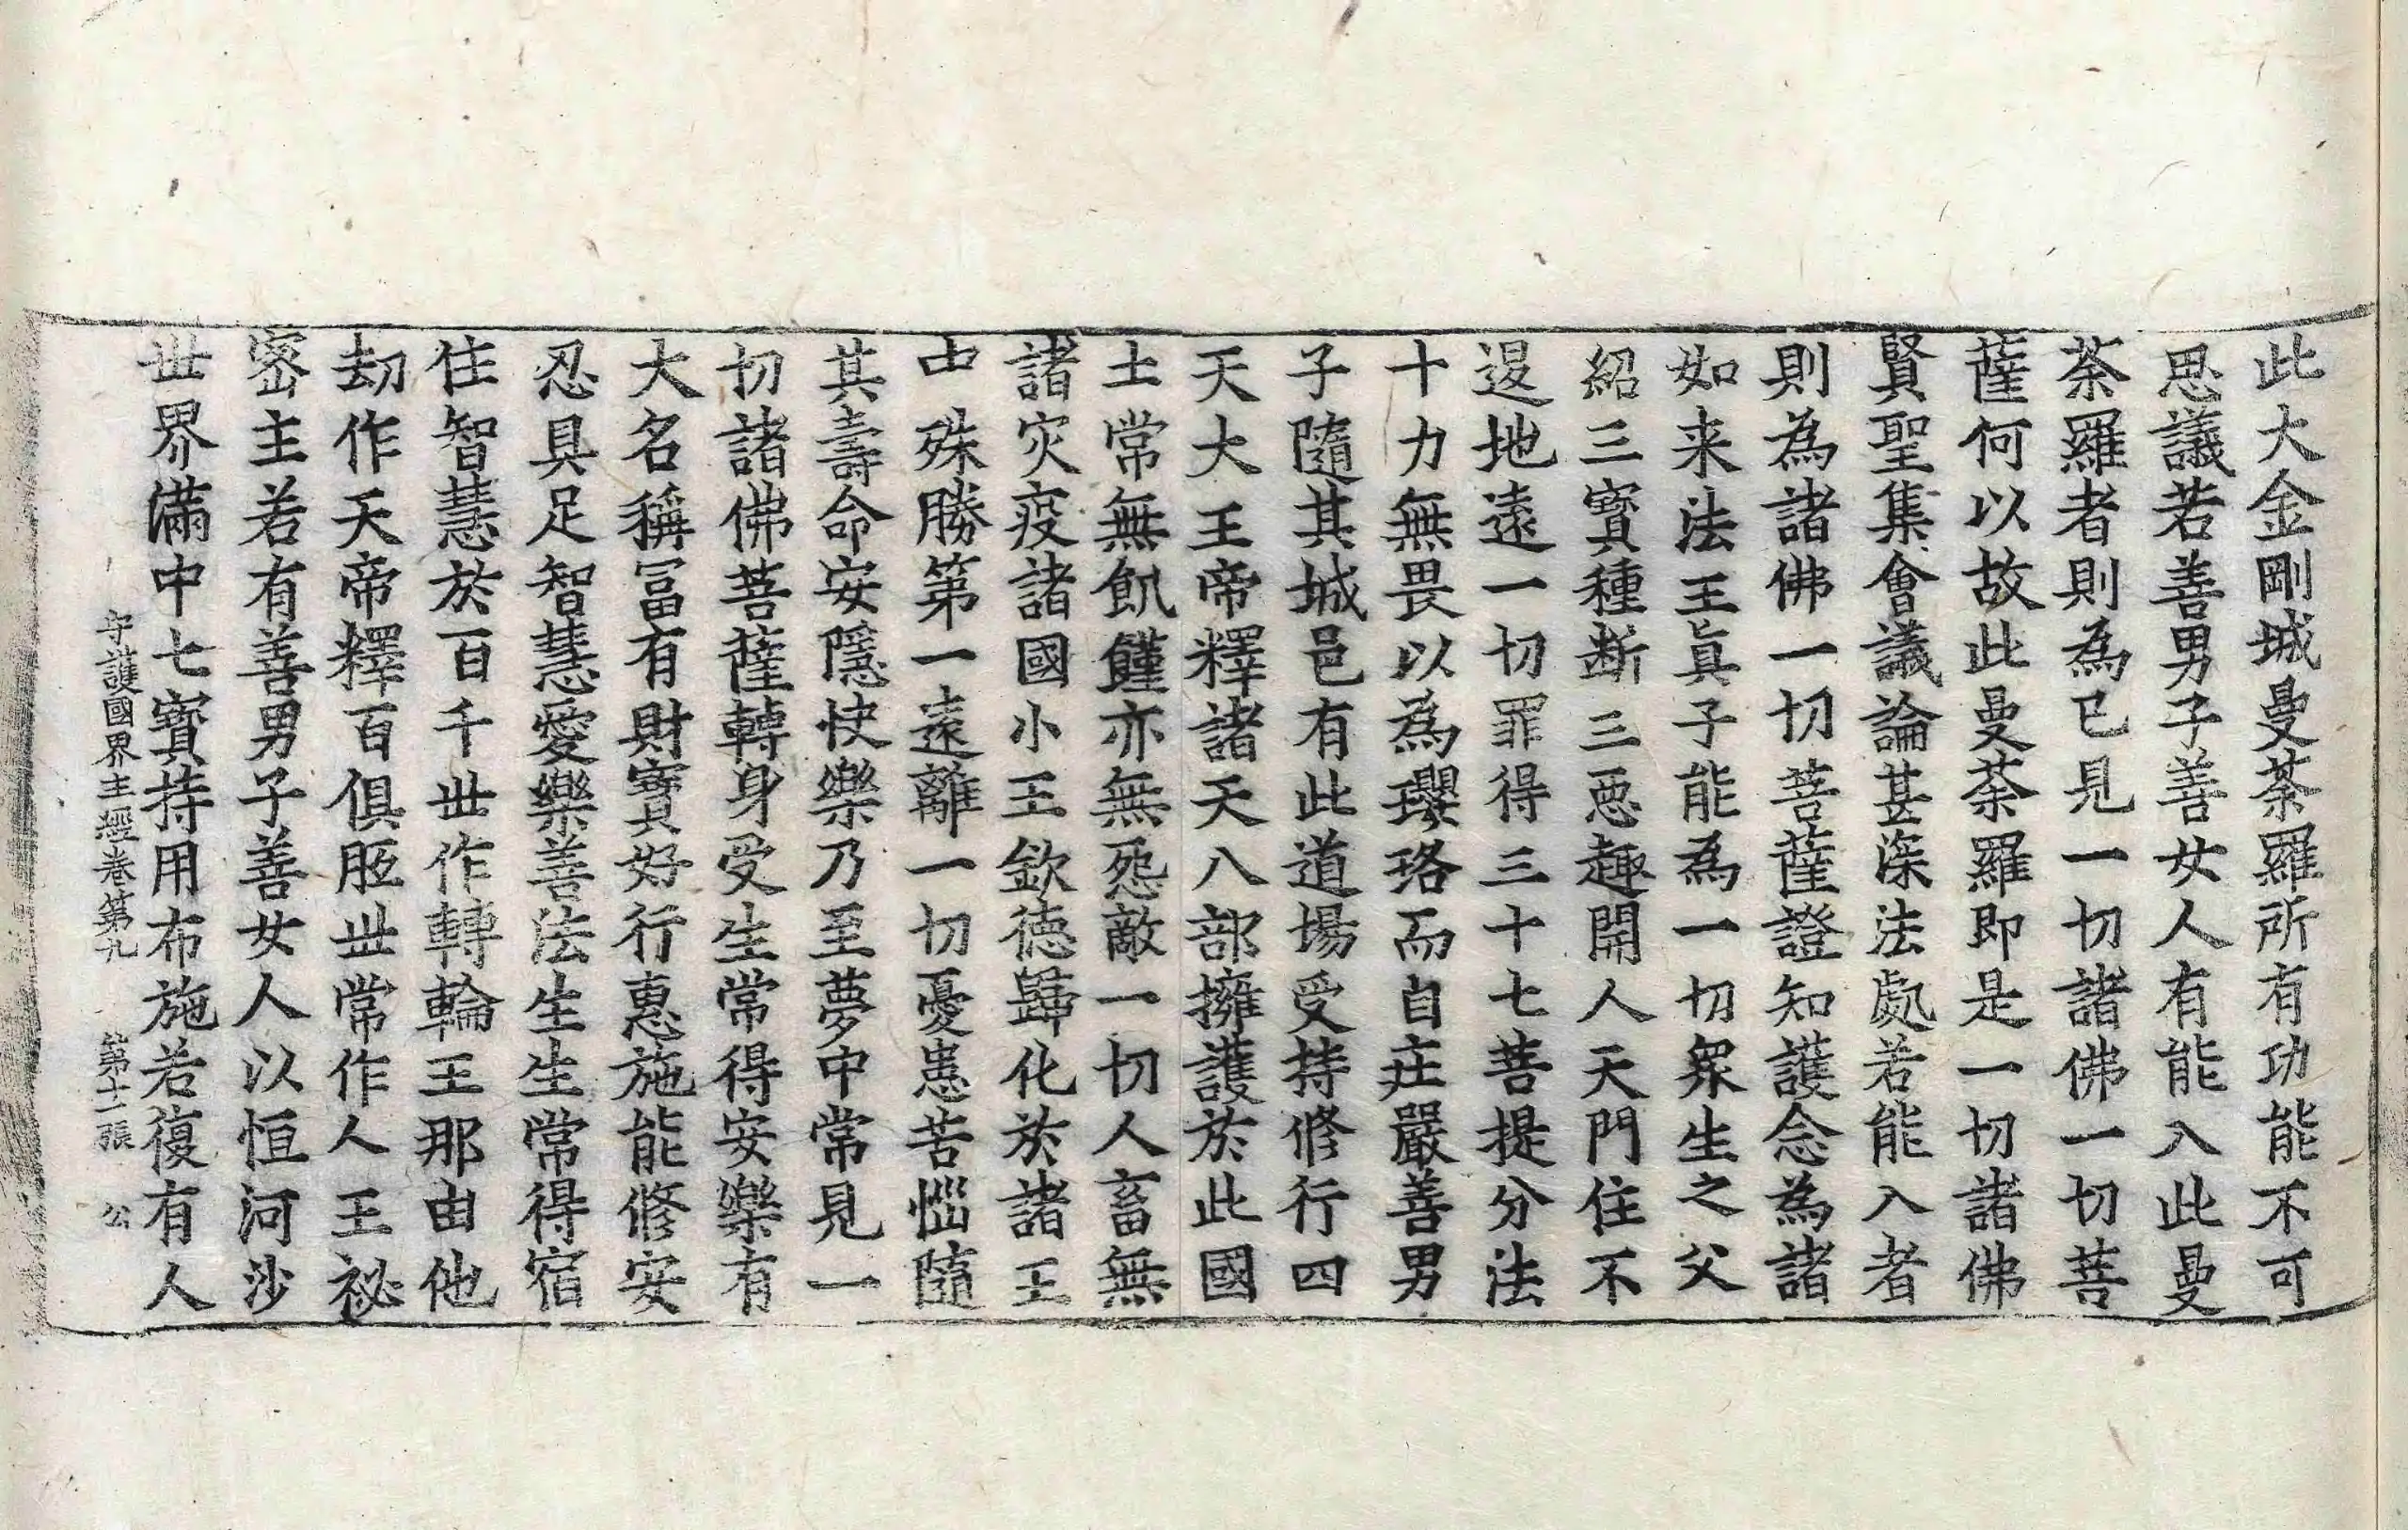 此大金剛城曼荼羅所有功能不可
思議若善男子善女人有能入此曼
荼羅者則為已見一切諸佛一切菩
薩何以故此曼荼羅即是一切諸佛
賢聖集會議論甚深法處若能入者
則為諸佛一切菩薩證知護念為諸
如来法王真子能為一切衆生之父
紹三寳種断三惡趣開人天門住不
退地遠一切罪得三十七菩提分法
十力無畏以為瓔珞而自庄嚴善男
子隨其城邑有此道場受持修行四
天大王帝釋諸天八部擁護於此國
土常無飢饉亦無怨敵一切人畜無
諸灾疫諸國小王欽德歸化於諸王
中殊勝第一遠離一切憂患苦惱隨
其壽命安隱快樂乃至夢中常見一
切諸佛菩薩轉身受生常得安樂有
大名稱冨有財寳好行惠施能修安
忍具足智慧愛樂善法生生常得宿
住智慧於百千世作轉輪王那由他
劫作天帝釋百俱胝世常作人王祕
密主若有善男子善女人以恒河沙
世界滿中七寳持用布施若復有人
守護國界主經卷第九 第十一張 公